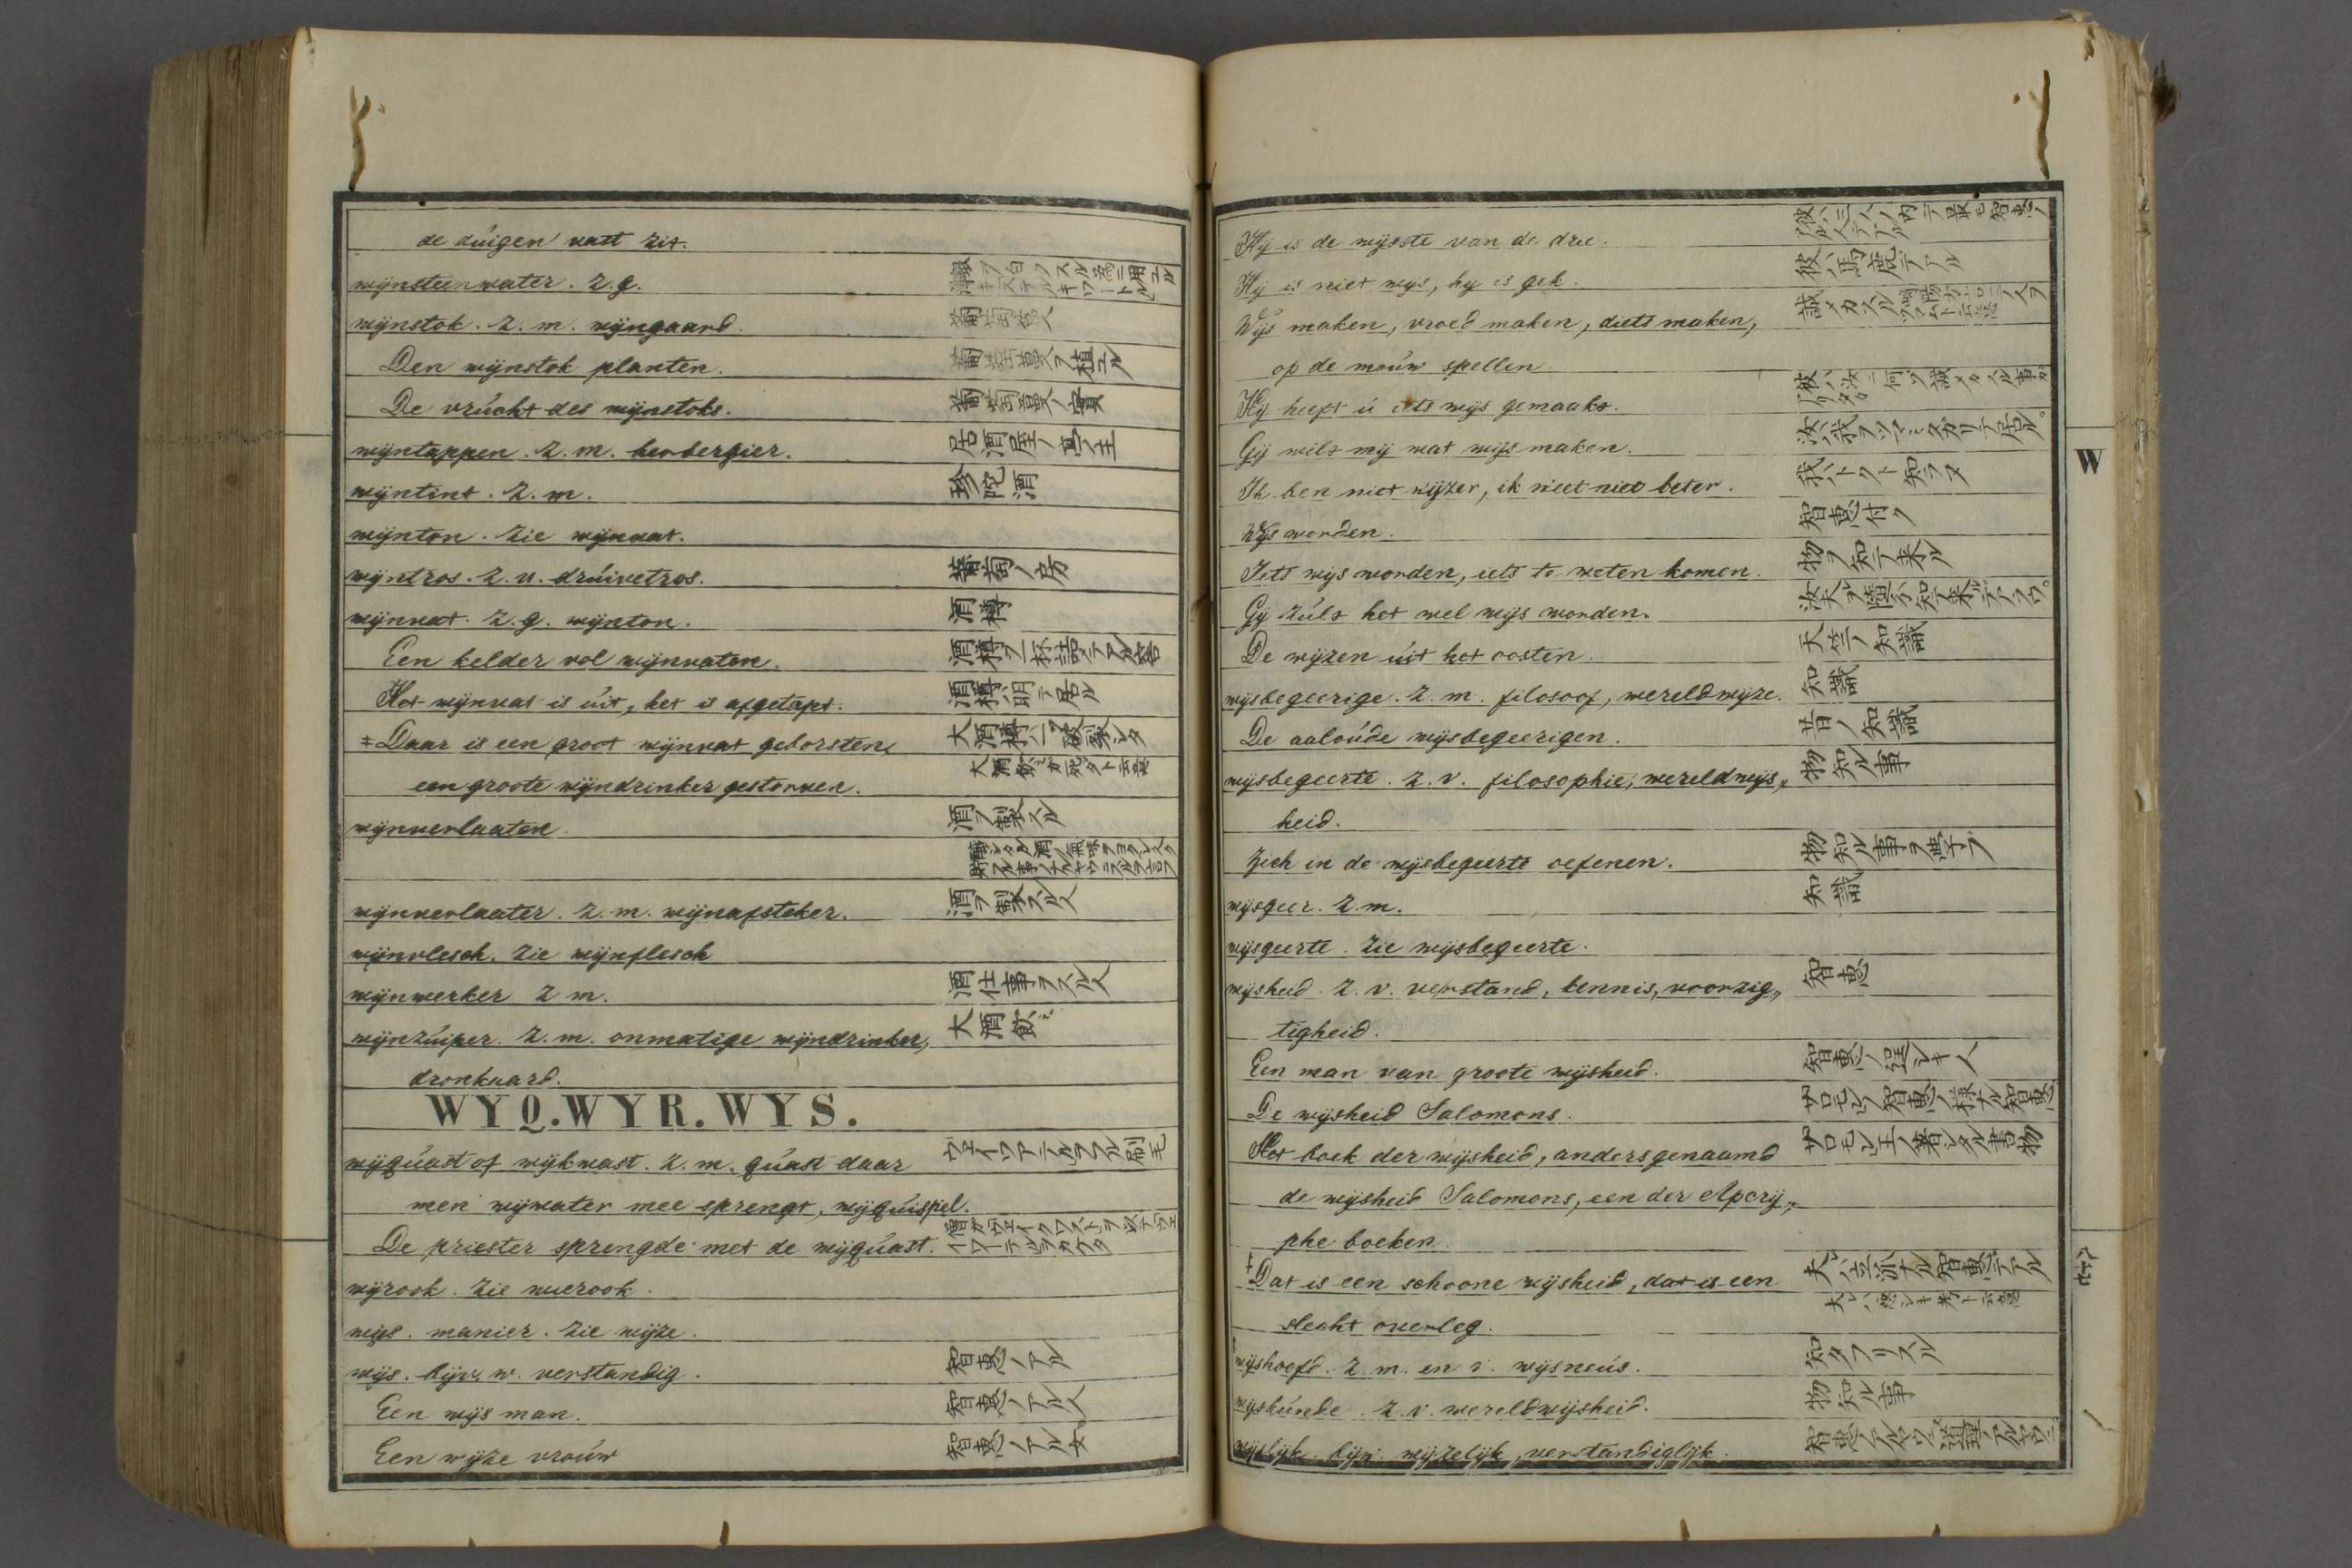 de dúigen vast zit.
wijnsteenwater. z.g.
wijnstok. z. m. wijngaard. 葡萄蔓
Den wijnstok planten. 葡萄蔓ヲ植ユル
De vrúcht des wijnstoks. 葡萄蔓ノ實
wijntappen. z. m. herbergier. 居酒屋ノ亭主
wijntint. z. m. 珍陀酒
wijnton. zie wijnvat.
wijntros. z. v. drúivetros. 葡萄ノ房
wijnvat. z.g. wijnton. 酒樽
Een kelder vol wijnvaten.
Het wijnvat is úit, het is afgetapt.
‡ Daar is een groot wijnvat geborsten,
een groote wijndrinker gestorven.
wijnverlaaten. 酒ヲ製スル
wijnverlaater. z. m. wijnafsteker. 酒ヲ製スル人
wijnvlesch. zie wijnflesch
wijnwerker z m. 酒仕事ヲスル人
wijnzúiper. z. m. onmatige wijndrinker, 大酒飲ミ
dronkaard.
WYQ.WYR.WYS.
wijqúast of wijkwast. z. m. qúast daar
men wijwater mee sprengt, wijqúispel.
De priester sprengde met de wijqúast.
wijrook. zie wierook.
wijs. manier. zie wijze.
wijs. bijv. w. verstandig. 智恵ノアル
Een wijs man. 智恵ノアル人
Een wijze vroúw 智恵ノアル女
Hij is de wijsste van de drie.
Hij is niet wijs, hij is gek. 彼ハ馬鹿テアル
Wijs maken, vroed maken, diets maken,
op de moúw spellen
Hij heeft ú iets wijs gemaakt.
Gij wilt mij wat wijs maken.
Ik ben niet wijzer, ik weet niet beter. 我ハトクト知ラヌ
Wijs worden. 智恵付ク
Iets wijs worden, iets te weten komen. 物ヲ知テ来ル
Gij zúlt het wel wijs worden.
De wijzen úit het oosten. 天竺ノ知識
wijsbegeerige. z. m. filosoof, wereldwijze. 知識
De aaloúde wijsbegeerigen. 昔ノ知識
wijsbegeerte. z. v. filosophie, wereldwijs„ 物知ル事
heid.
Zich in de wijsbegeerte oefenen. 物知ル事ヲ學フ
wijsgeer. z. m. 知識
wijsgeerte. zie wijsbegeerte.
wijsheid. z. v. verstand, kennis, voorzig„ 智恵
tigheid.
Een man van groote wijsheid.
De wijsheid Salomons. サロモンノ智恵ノ様ナル智恵
Het boek der wijsheid, anders genaamd サロモン王ノ著シタル書物
de wijsheid Salomons, een der Apcrij„
phe boeken.
‡ Dat is een schoone wijsheid, dat is een 夫ハ立派ナル智恵テアル
slecht overleg.
wijshoofd. z. m. en v. wijsneús. 知タフリスル
wijskúnde. z. v. wereldwijsheid. 物知ル事
wijslijk. bijw. wijzelijk, verstandiglijk.
W